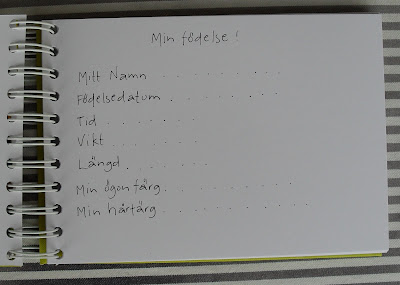 Min födelse!
Mitt Namn . . . . . . . . . .
Födelsedatum . . . . . . . . . .
Tid . . . . . . .
Vikt . . . . . . .
Längd . . . . . . .
Min ögonfärg . . . . . . . . . .
Min hårfärg . . . . . . . . . . . .